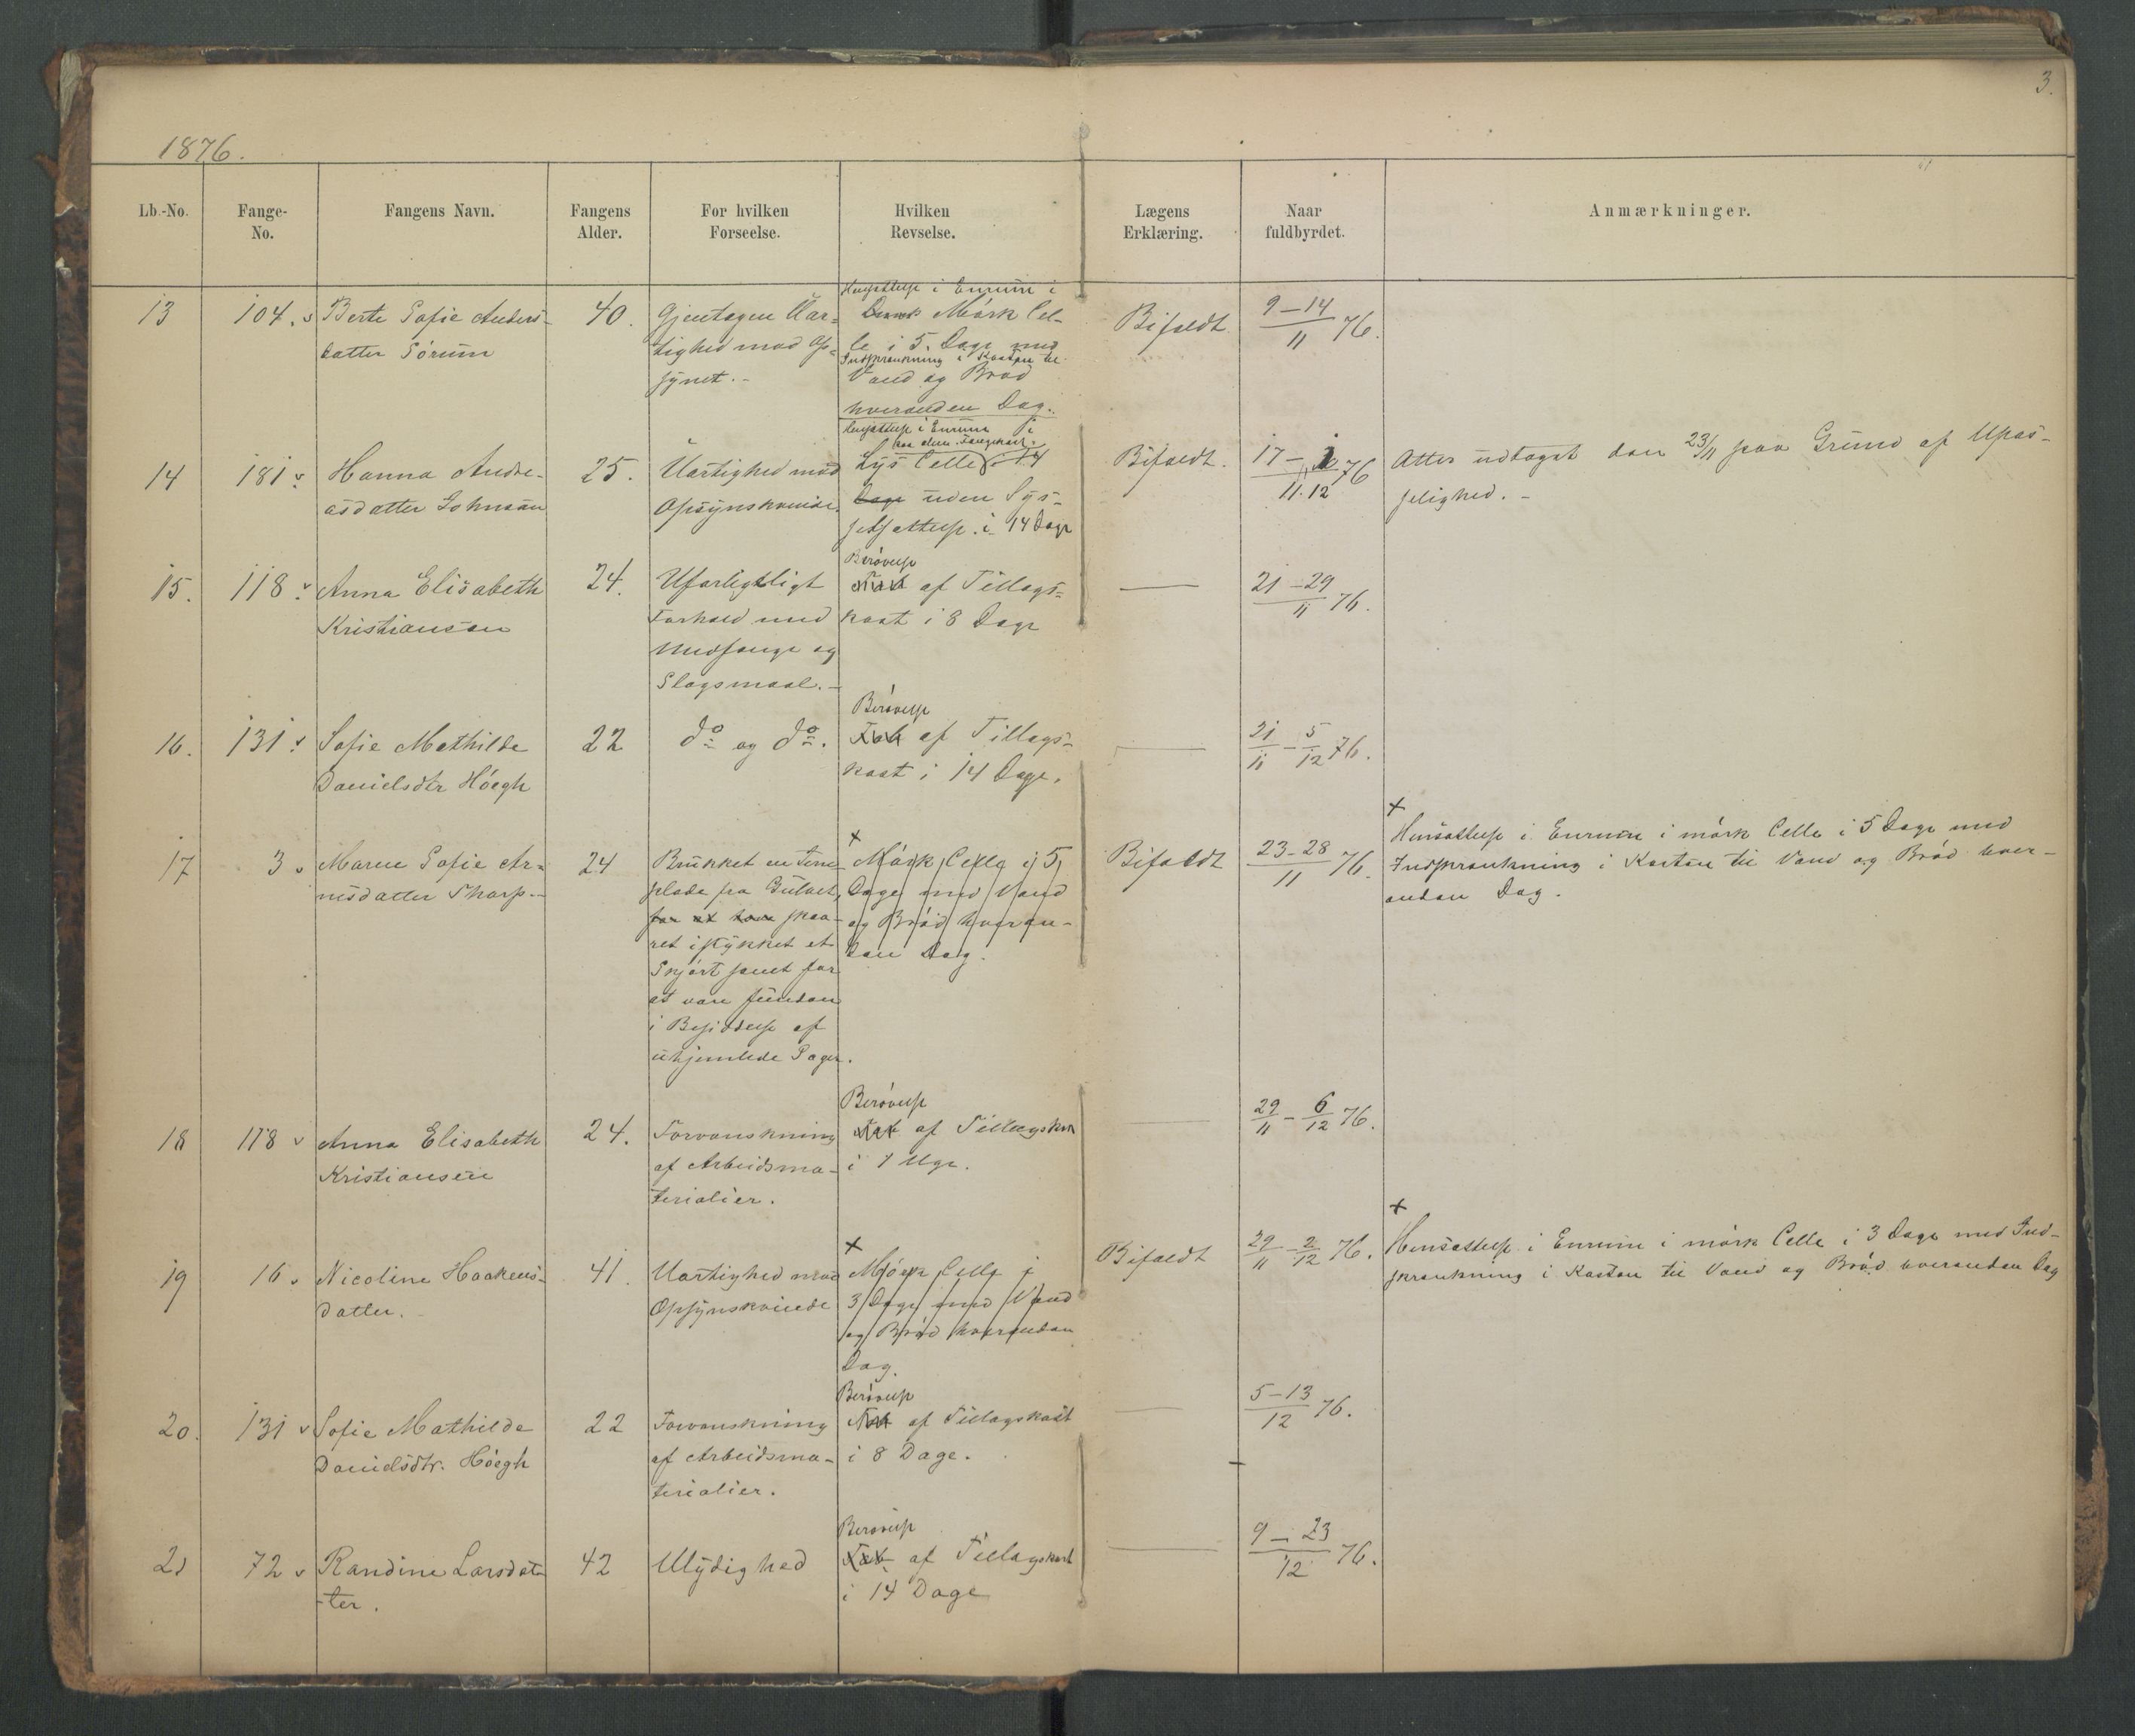 3.
1876.
Lb.-No.
Fange-
No.
Fangens Navn.
Fangens
Alder.
For hvilken
Forseelse.
Hvilken
Revselse.
Lægens
Erklæring.
Naar
fuldbyrdet.
Anmærkninger.
13
104.
Berte Sofie Anders-
datter Sörum
40.
Gjentagen Uar-
tighed mod Op-
synet.-
Hensættelse i Enrum i
Mörk Cel-
le i 5. Dage med
Indskrænkning i Kosten til
Vand og Bröd
hveranden Dag.
Bifaldt
9-14
11 76.
14
181
Hanna Andre-
asdatter Johnsen
25.
Uartighed mod
Opsynskvinde.
Hensættelse i Enrum i
paa alm. Fangekost
Lys Celle i 14
Dage uden Sys-
selsættelse i 14 Dage
Bifaldt.
17-
11.12 76
Atter udtaget den 23/11 paa Grund af Upas-
selighed.-
15.
118
Anna Elisabeth
Kristiansen
24.
Ufordrageligt
Forhold med
Medfange og
Slagsmaal.-
Berövelse
Tab af Tillægs-
kost i 8 Dage
21-29
11 76.
16.
131
Sofie Mathilde
Danielsdtr Höegh
22
do og do.
Berövelse
Tab af Tillægs-
kost i 14 Dage.
21/11 - 5/12 76.
17
3
Maren Sofie Ar-
nesdatter Skarp.-
24
Brukket en Jern-
plade fra Gulvet,
for at have skaa-
ret istykket et
Skjört samt for
at være funden
i Besiddelse af
uhjemlede Sager.
x
Mörk Celle i 5
Dage med Vand
og Bröd hveran-
den Dag.
Bifaldt
23-28
11 76.
x
Hensættelse i Enrum i mörk Celle i 5 Dage med
Indskrænkning i Kosten til Vand og Bröd hver-
anden Dag.
18
118
Anna Elisabeth
Kristiansen
24.
Forvanskning
af Arbeidsma-
terialier.
Berövelse
Tab af Tillægskost
i 1 Uge.
29/11 - 6/12 76.
19
16
Nicoline Haakens-
datter.
41.
Uartighed mod
Opsynskvinde
x
Mörk Celle i
3 Dage med Vand
og Bröd hveranden
Dag.
Bifaldt
29/11 - 2/12 76.
x
Hensættelse i Enrum i mörk Celle i 3 Dage med Ind-
skrænkning i Kosten til Vand og Bröd hveranden Dag
20.
131
Sofie Mathilde
Danielsdtr. Höegh
22
Forvanskning
af Arbeidsma-
terialier.
Berövelse
Tab af Tillægskost
i 8 Dage.
5-13
12 76.
21
72
Randine Larsdat-
-ter.
42
Ulydighed
Berövelse
Tab af Tillægskost
i 14 Dage
9-23
12 76.